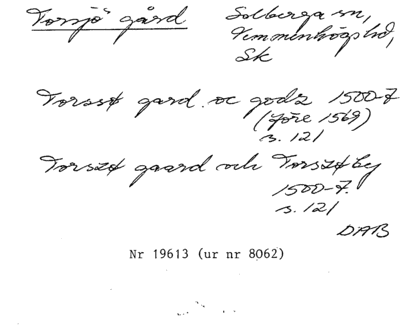 Torsjö gård
Solberga sn,
Vemmenhögs hd,
Sk
Torssø gard oc godz 1500-t
(före 1569)
s. 121
Torszø gaard och Torszø by
1500-t.
s. 121
DAB
Nr 19613 (ur nr 8062)